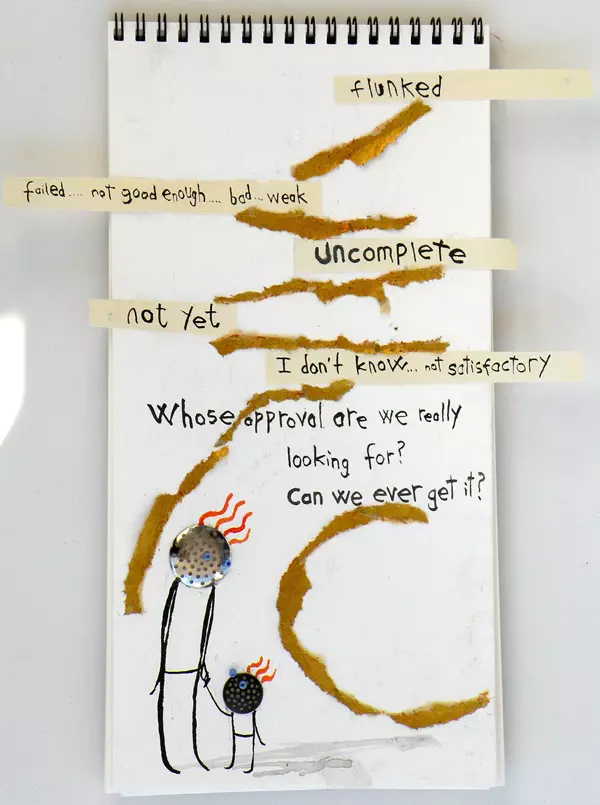 flunked
failed.... not good enough.... bad... weak
uncomplete
not yet
I don't know... not satisfactory
Whose approval are we really
looking for?
Can we ever get it?